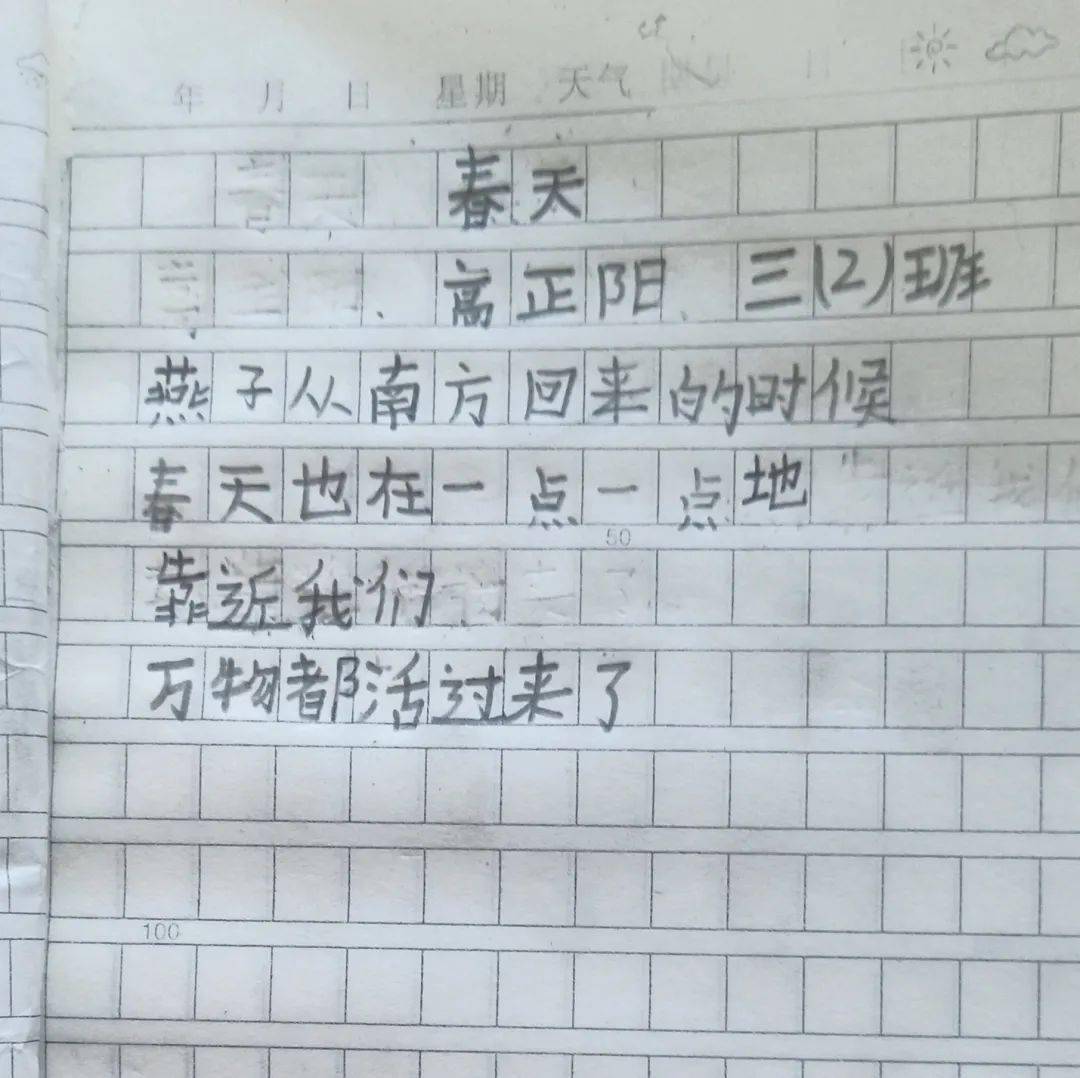 年 月 日 星期 天气
春天
高正阳 三(2)班
燕子从南方回来的时候
春天也在一点一点地
50
靠近我们
万物都活过来了
100